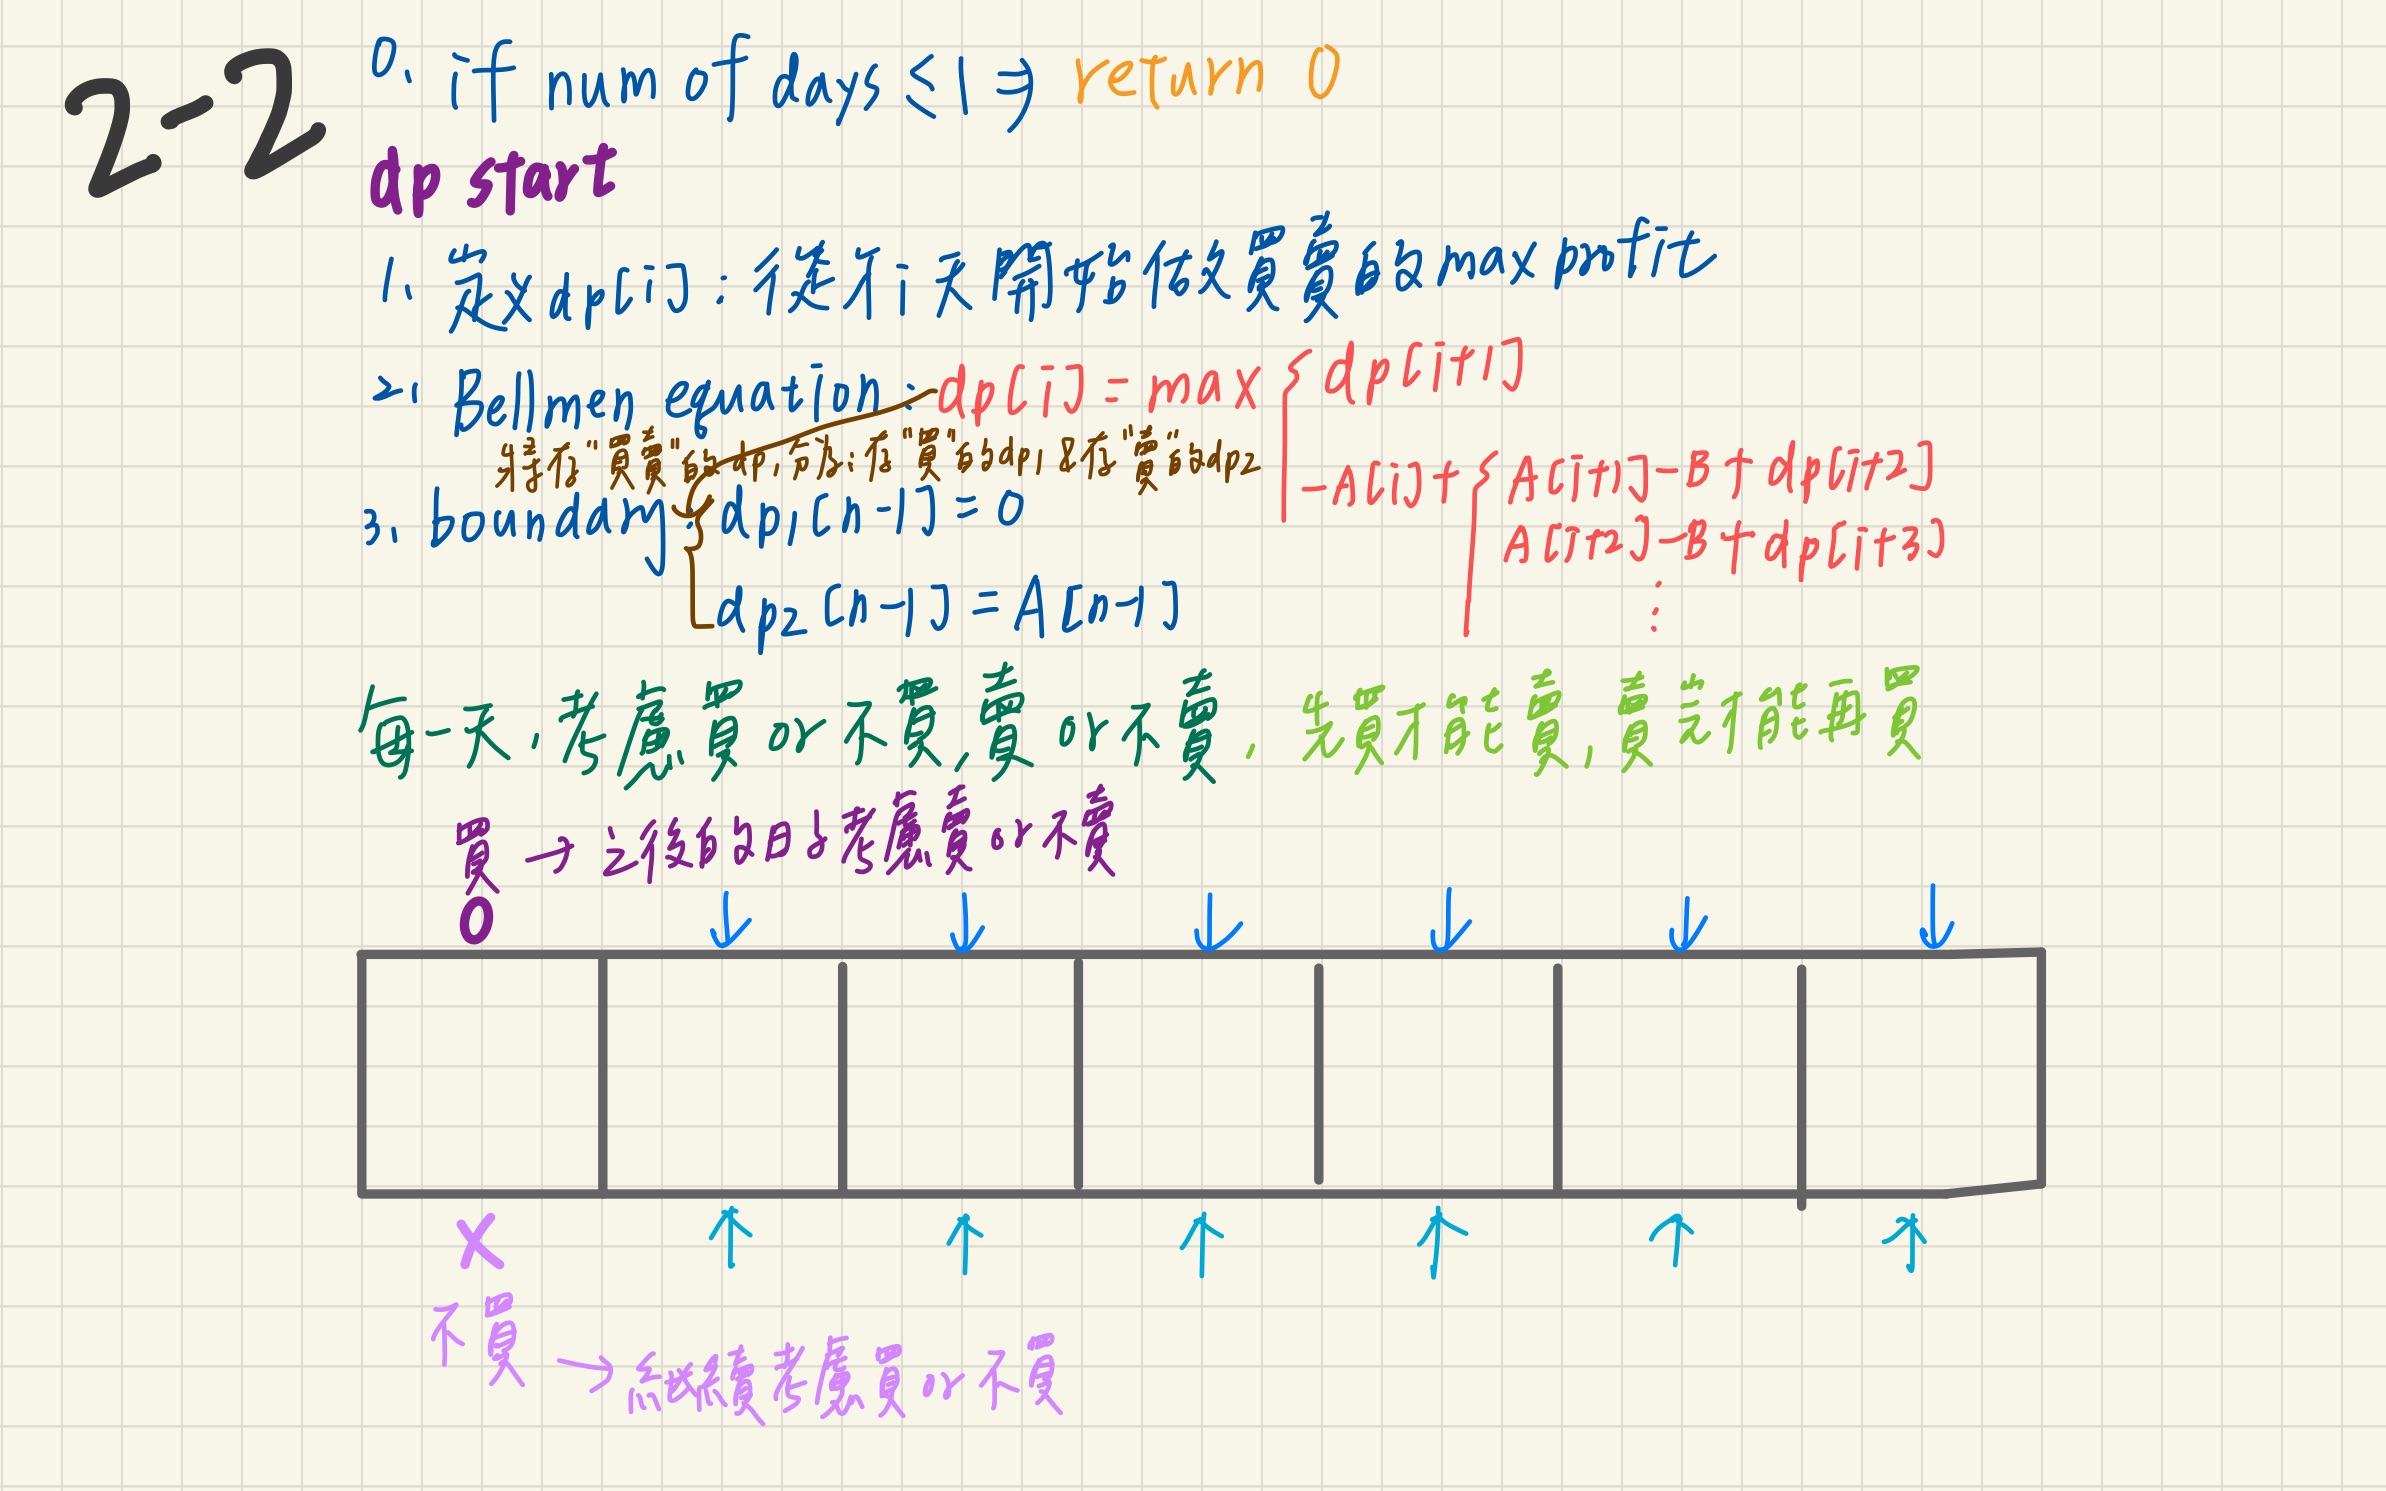 2-2
0. if num of days ≤ 1 ⇒ return 0
dp start
1. 定义 dp[i]: 從第i天開始做買賣的max profit
2. Bellmen equation: dp[i] = max { dp[i+1]
-A[i]+ { A[i+1]-B+dp[i+2]
A[i+2]-B+dp[i+3]
⋮
持存"買賣"的dp,分成:存"買"的dp1&存"賣"的dp2
3. boundary: { dp1[n-1] = 0
dp2[n-1] = A[n-1]
每一天,考慮買 or 不買,賣 or 不賣, 先買才能賣,賣完才能再買
買 → 之後的日子考慮賣 or 不賣
O
↓ ↓ ↓ ↓ ↓ ↓
X
↑ ↑ ↑ ↑ ↑ ↑
不買 → 繼續考慮買 or 不買